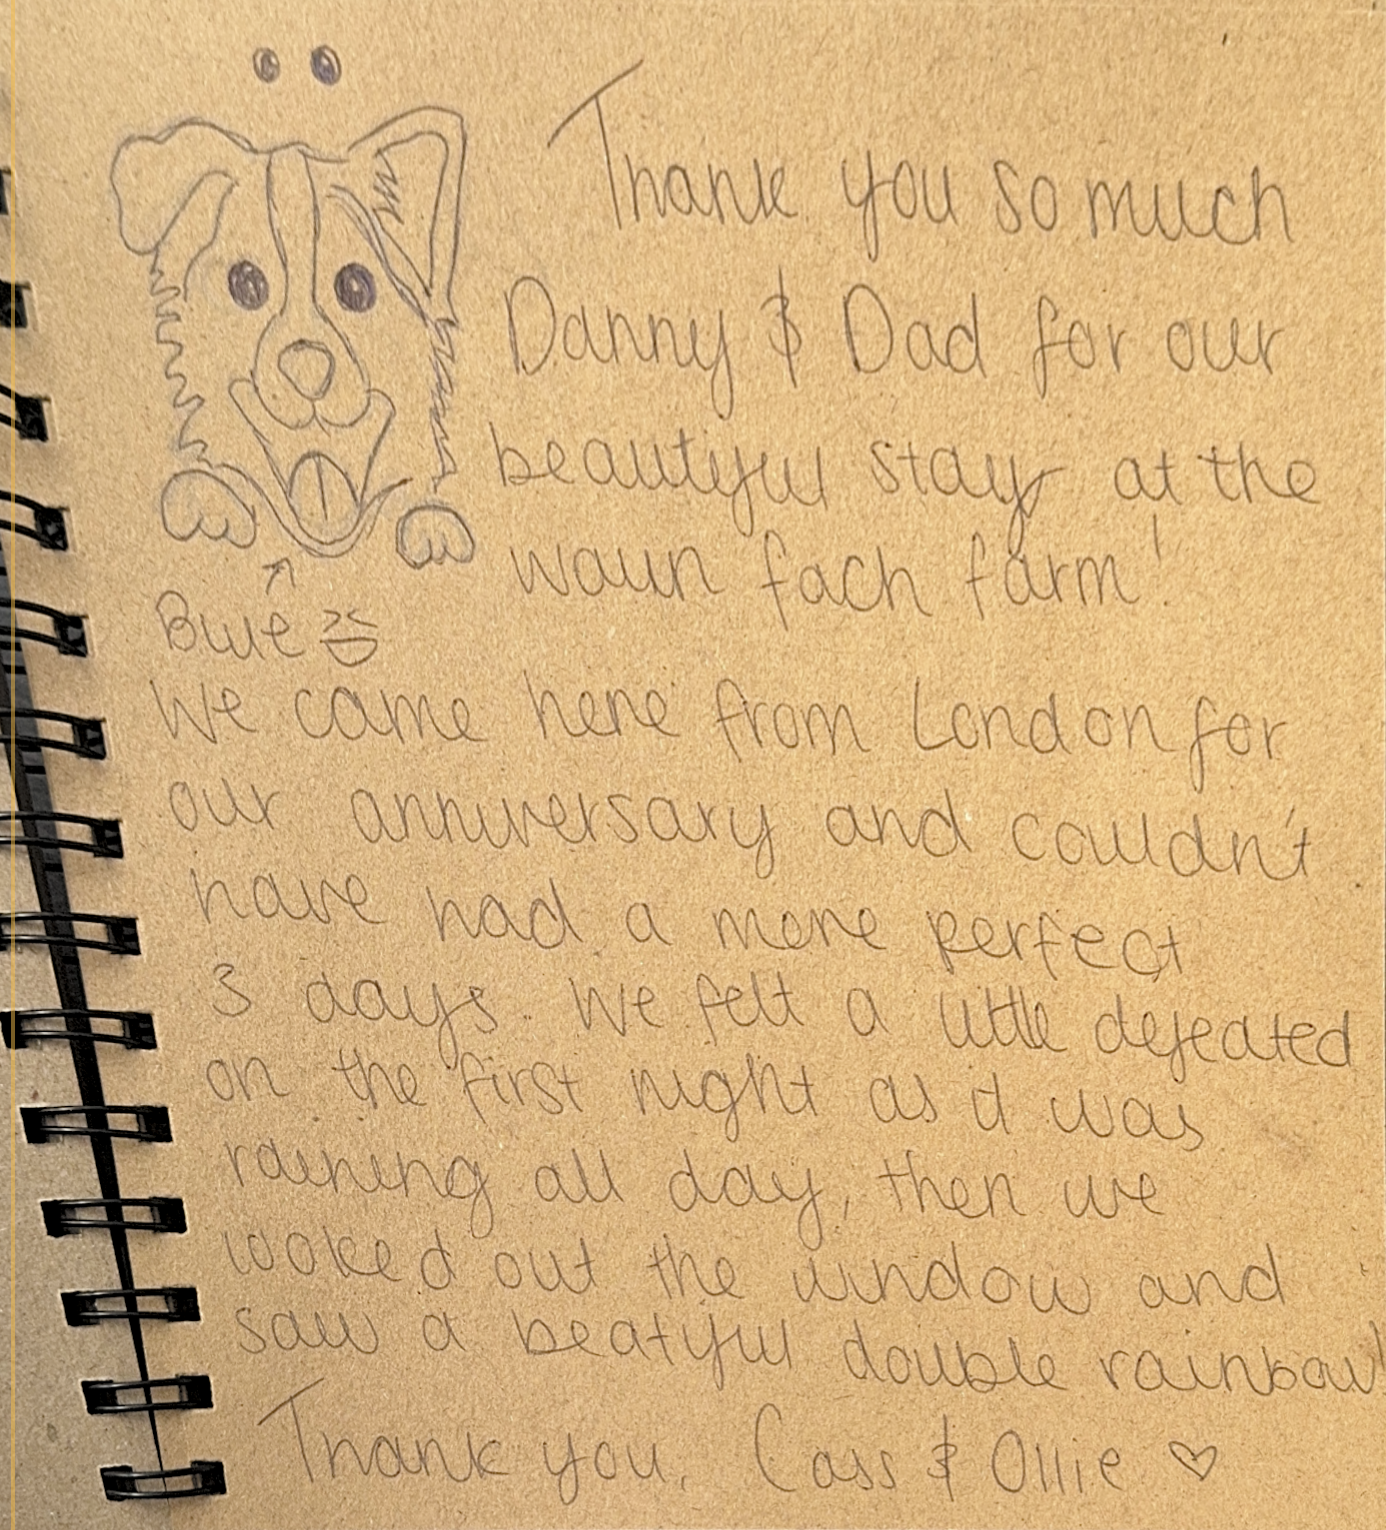 Thank you so much
Danny & Dad for our
beautiful stay at the
waun fach farm!
Blue
We came here from London for
our anniversary and couldn't
have had a more perfect
3 days. We felt a little defeated
on the first night as it was
raining all day, then we
looked out the window and
saw a beatiful double rainbow!
Thank you, Cass & Ollie ♡